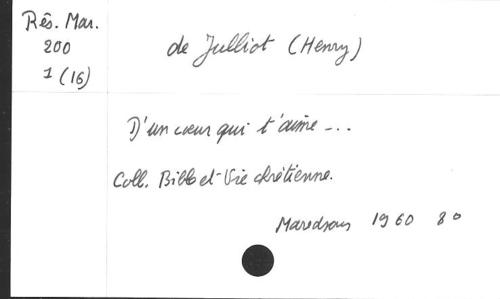 Rés. Mar.
200
1 (16)
de Julliot (Henry)
D'un cœur qui t'aime ...
Coll. Bible et Vie chrétienne.
Maredsous 1960 8°